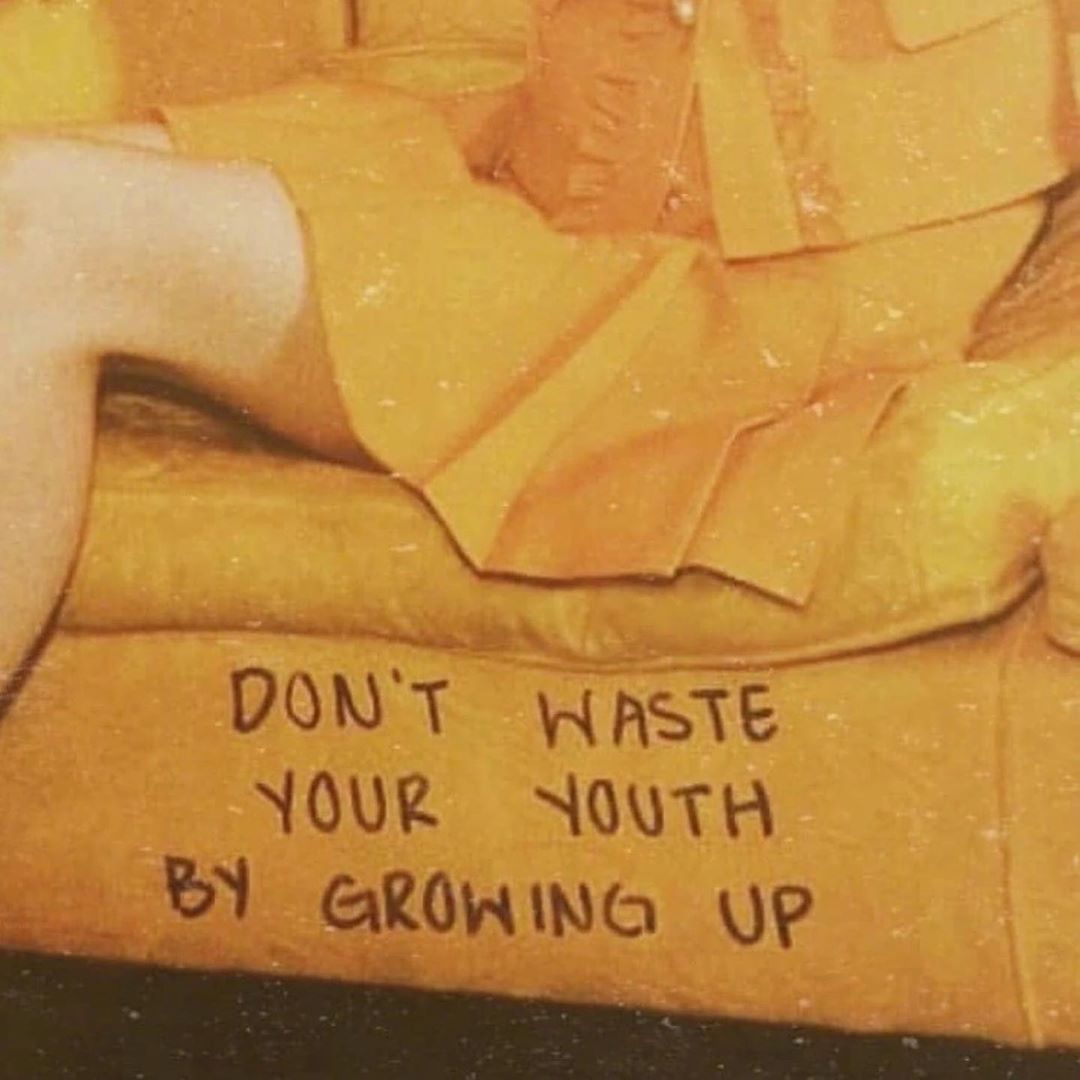 DON'T WASTE
YOUR YOUTH
BY GROWING UP